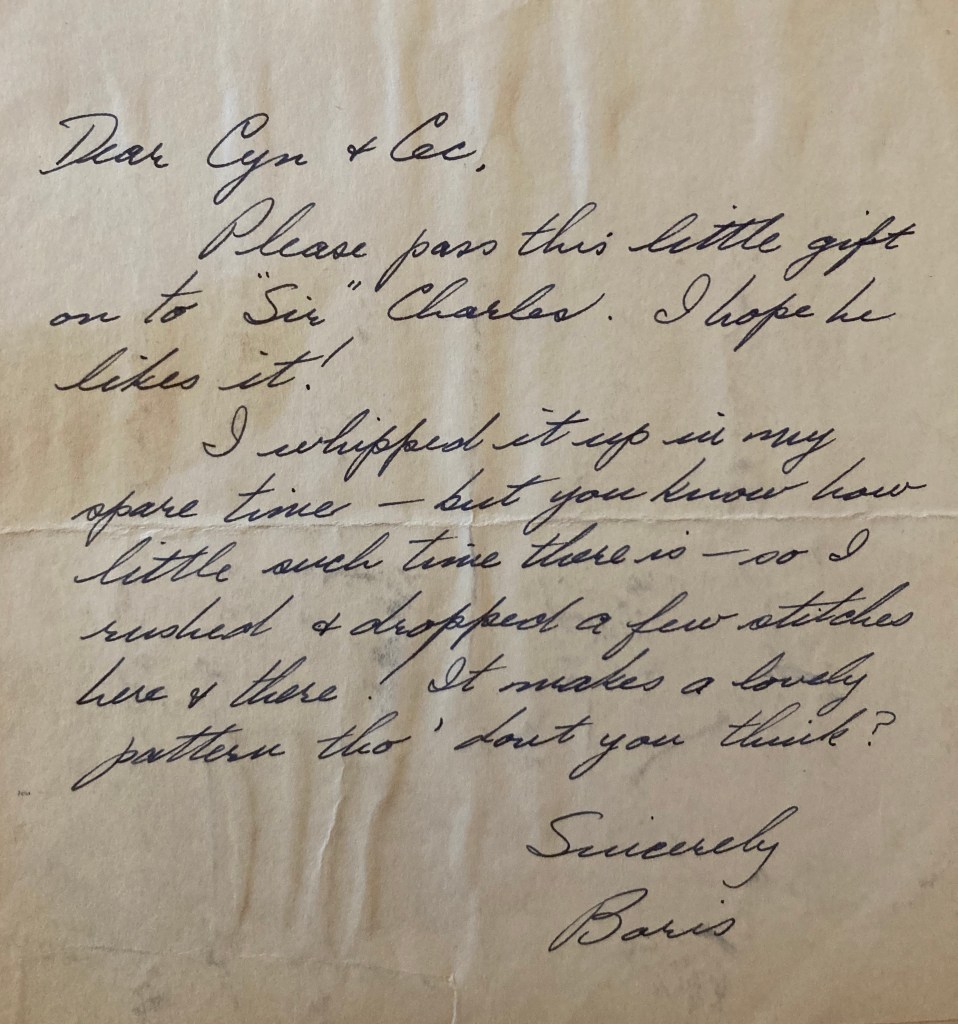 Dear Cyn & Cec,
Please pass this little gift
on to "Sir" Charles. I hope he
likes it!
I whipped it up in my
spare time – but you know how
little such time there is – so I
rushed & dropped a few stitches
here & there! It makes a lovely
pattern tho' dont you think?
Sincerely
Boris